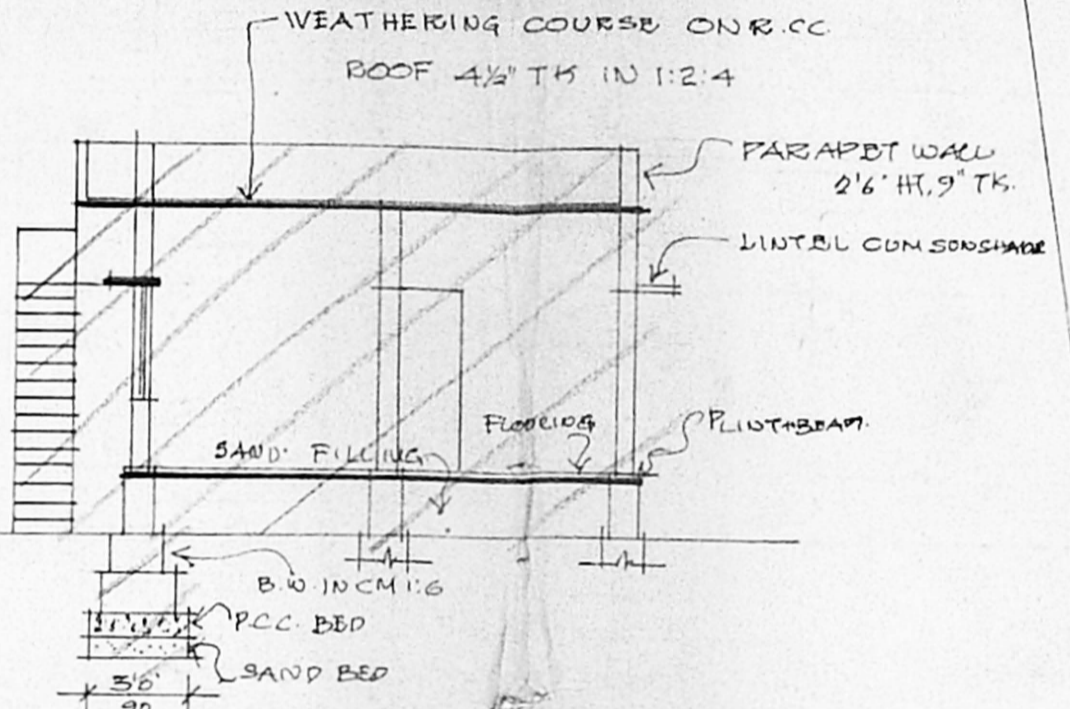 WEATHERING COURSE ON R.CC
ROOF 4½" TK IN 1:2:4
PARAPET WALL
2'6" HT, 9" TK.
LINTEL CUM SUNSHADE
FLOORING
PLINTH BEAM.
SAND FILLING
B.W. IN CM 1:6
P.C.C. BED
SAND BED
3'0"
90